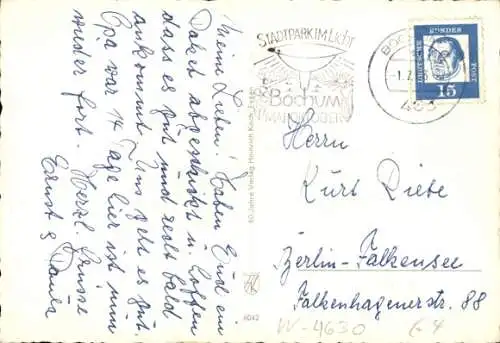 Meine Lieben! Haben Euch ein
Paket abgeschickt u. hoffen
dass es gut und recht bald
ankommt. Uns geht es gut.
Opa war 14 Tage hier ist nun
wieder fort. Herzl. Grüsse
Ernst & Paula
60 Jahre Verlag
6042
STADTPARK IM Licht
Bochum
MAI-OKTOBER
BOCHUM
-1.7.
463
DEUTSCHE BUNDESPOST
15
Herrn
Kurt Diebe
Berlin-Falkensee
Falkenhagenerstr. 88
W-4630
64